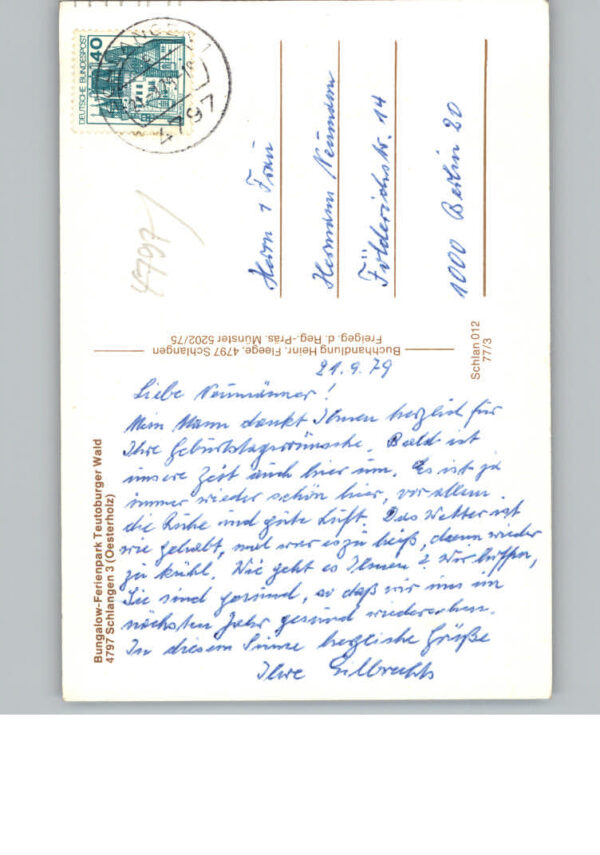 Bungalow-Ferienpark Teutoburger Wald
4797 Schlangen 3 (Oesterholz)
21.9.79
Liebe Neumänner!
Mein Mann dankt Ihnen herzlich für
Ihre Geburtstagswünsche. Bald ist
unsere Zeit auch hier um. Es ist ja
immer wieder schön hier, vor allem
die Ruhe und gute Luft. Das Wetter ist
wie gehabt, mal war es zu heiß, dann wieder
zu kühl. Wie geht es Ihnen? Wir hoffen,
Sie sind gesund, so daß wir uns im
nächsten Jahr gesund wiedersehen.
In diesem Sinne herzliche Grüße
Ihre
Buchhandlung Heinr. Fleege, 4797 Schlangen
Freigeg. d. Reg.-Präs. Münster 5202/75
Schlan 012
77/3
DEUTSCHE BUNDESPOST
40
4797
4797
Herrn & Frau
Hermann Neumann
Földerichstr. 14
1000 Berlin 20